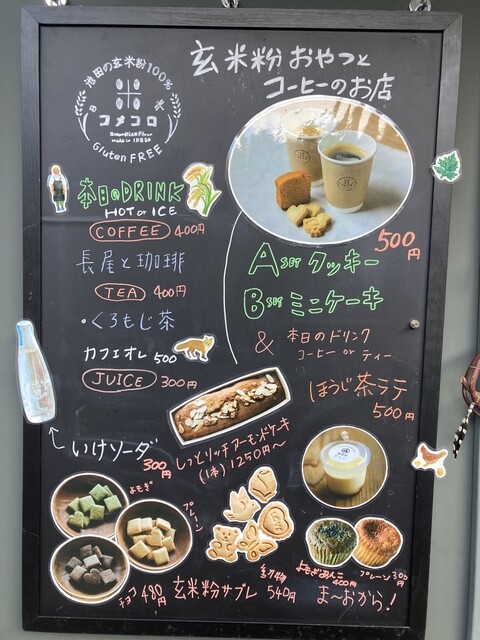 池田の玄米粉100%
コメコロ
BrownRiceFlour
made in IKEDA
Gluten FREE
玄米粉おやつと
コーヒーのお店
本日のDRINK
HOT or ICE
COFFEE 400円
長屋と珈琲
TEA 400円
・くろもじ茶
カフェオレ 500
JUICE 300円
いけソーダ
300円
500円
A SET クッキー
B SET ミニケーキ
& 本日のドリンク
コーヒー or ティー
ほうじ茶ラテ
500円
しっとりリッチアーモンドケーキ
(1本) 1250円〜
よもぎ
プレーン
チョコ 480円
玄米粉サブレ
540円
よもぎあんこ
400円
プレーン 300円
ま〜おから!